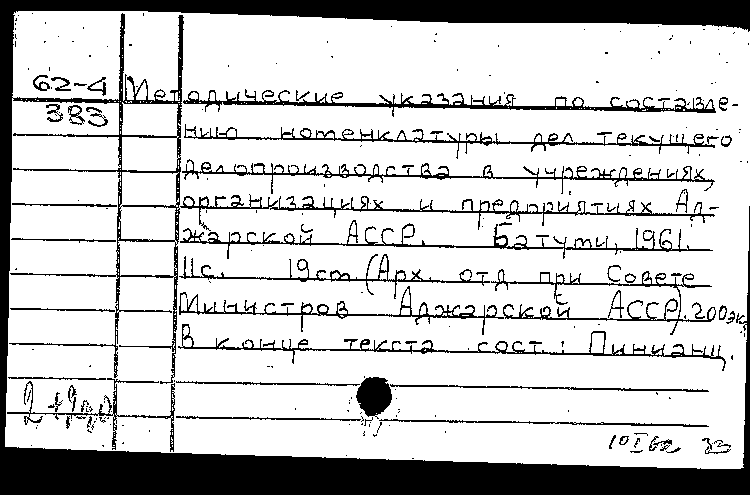 62-4
383
Методические указания по составле-
нию номенклатуры дел текущего
делопроизводства в учреждениях,
организациях и предприятиях Ад-
жарской АССР. Батуми, 1961.
11с. 19см. (Арх. отд. при Совете
Министров Аджарской АССР). 200экз
В конце текста сост.: Пинианц.
10 I 62 33